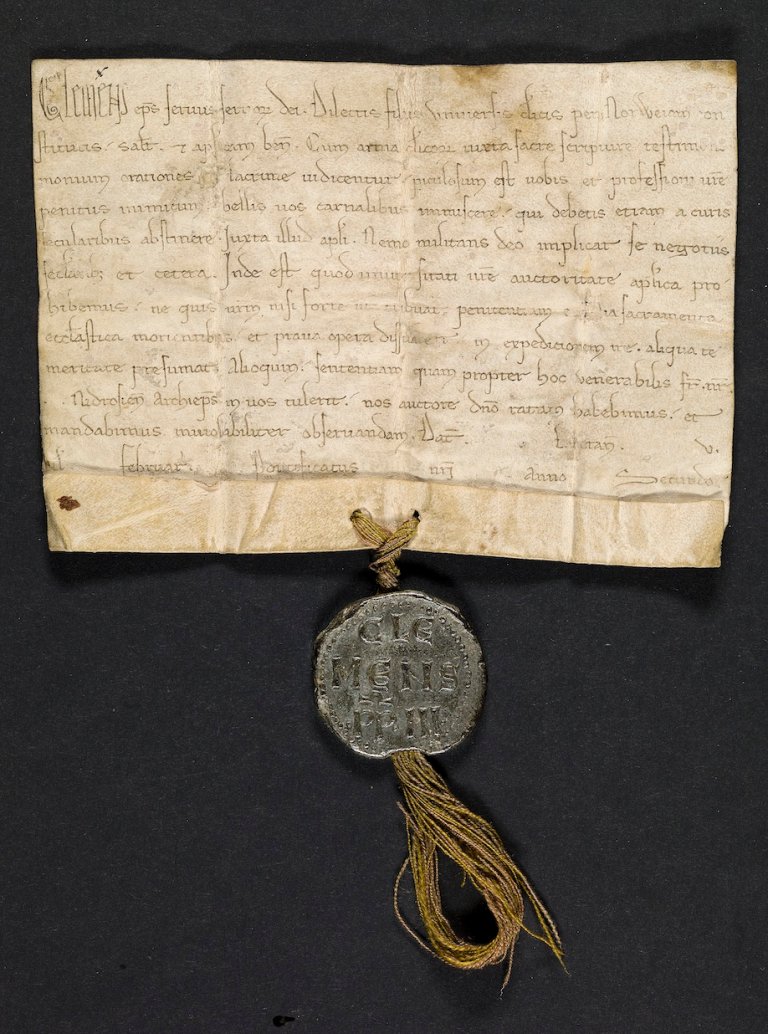 Clemens eps seruus seruoꝝ dei. Dilectis filiis vniuersis cleicis per Norweiam con
stitutis. salt. ⁊ aplicam ben. Cum arma clicoꝝ iuxta sacre scripture testimoni
monium orationes lacrime iudicentur. piculosum est uobis et professioni ure
penitus inimicum bellis uos carnalibus inmiscere. qui debetis etiam a curis
secularibus abstinere. Juxta illud apli. Nemo militans deo implicat se negotiis
seclarib; et cetera. Inde est quod uniuersitati ure auctoritate aplica pro
hibemus. ne quis urm nisi forte ut tribuat penitentiam et alia sacramenta
ecclesiastica morientibus. et praua opera dissuadeat in expedicionem ire. aliqua te
meritate presumat. Alioquin. sententiam quam propter hoc uenerabilis fr. nr
Nidrosien Archieps in uos tulerit. nos auctore dno ratam habebimus. et
mandabimus inuiolabiliter obseruandam. Dat. Lateran. v.
kl februar. Pontificatus nri Anno Secundo
CLE
MENS
PP III